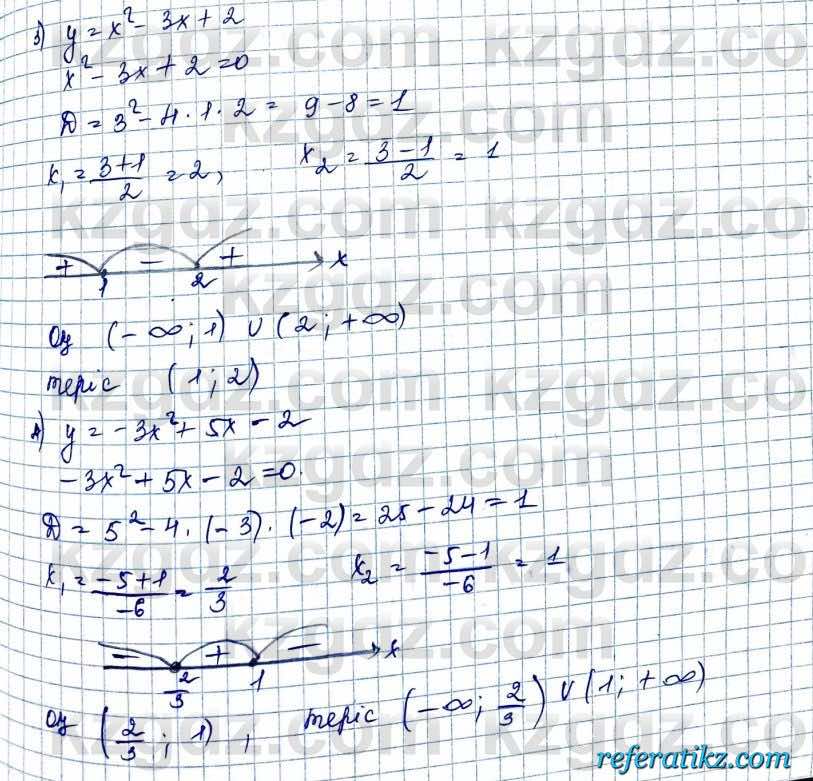 3) y = x² - 3x + 2
x² - 3x + 2 = 0
D = 3² - 4 · 1 · 2 = 9 - 8 = 1
x₁ = (3+1)/2 = 2, x₂ = (3-1)/2 = 1
+ - + x
1 2
оң (-∞; 1) ∪ (2; +∞)
теріс (1; 2)
4) y = -3x² + 5x - 2
-3x² + 5x - 2 = 0.
D = 5² - 4 · (-3) · (-2) = 25 - 24 = 1
x₁ = (-5+1)/-6 = 2/3 x₂ = (-5-1)/-6 = 1
- + - x
2/3 1
оң (2/3; 1), теріс (-∞; 2/3) ∪ (1; +∞)
kzgdz.com
referatikz.com